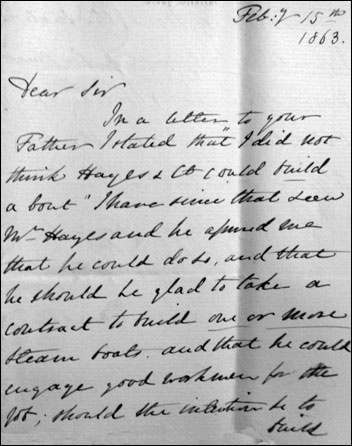 Feb:y 15th
1863.
Dear Sir
In a letter to your
Father I stated that "I did not
think Hayes & Co could build
a boat" I have since that seen
Mr Hayes and he assured me
that he could do so, and that
he should be glad to take a
contract to build one or more
steam boats. and that he could
engage good workmen for the
job; should the intention be to
build